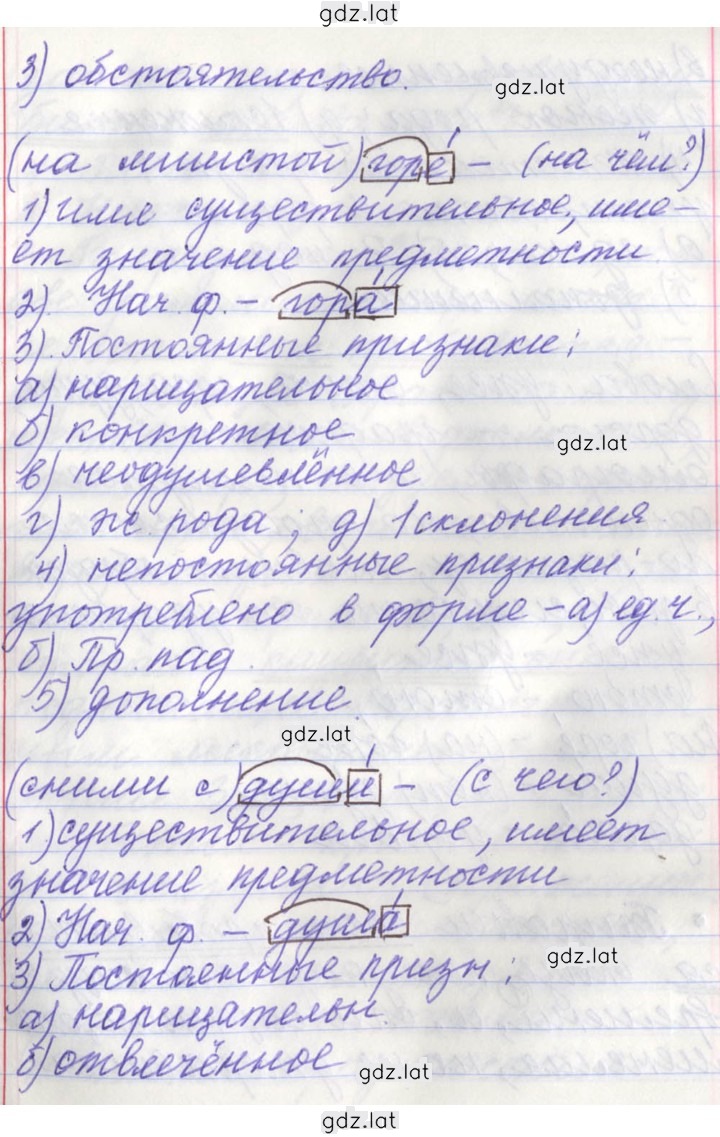 gdz.lat
3) обстоятельство.
gdz.lat
(на мшистой) горе́ – (на чём?)
1) имя существительное, име-
ет значение предметности
2). Нач. ф. – гора́
3). Постоянные признаки:
а) нарицательное
б) конкретное
gdz.lat
в) неодушевлённое
г) ж. рода; д) 1 склонения.
4) непостоянные признаки:
употреблено в форме – а) ед. ч.,
б) Пр. пад.
5) дополнение.
gdz.lat
(сними с) души́ – (с чего?)
1) существительное, имеет
значение предметности
2) Нач. ф. – душа́
gdz.lat
3) Постоянные призн:
а) нарицательн.
б) отвлечённое
gdz.lat
gdz.lat